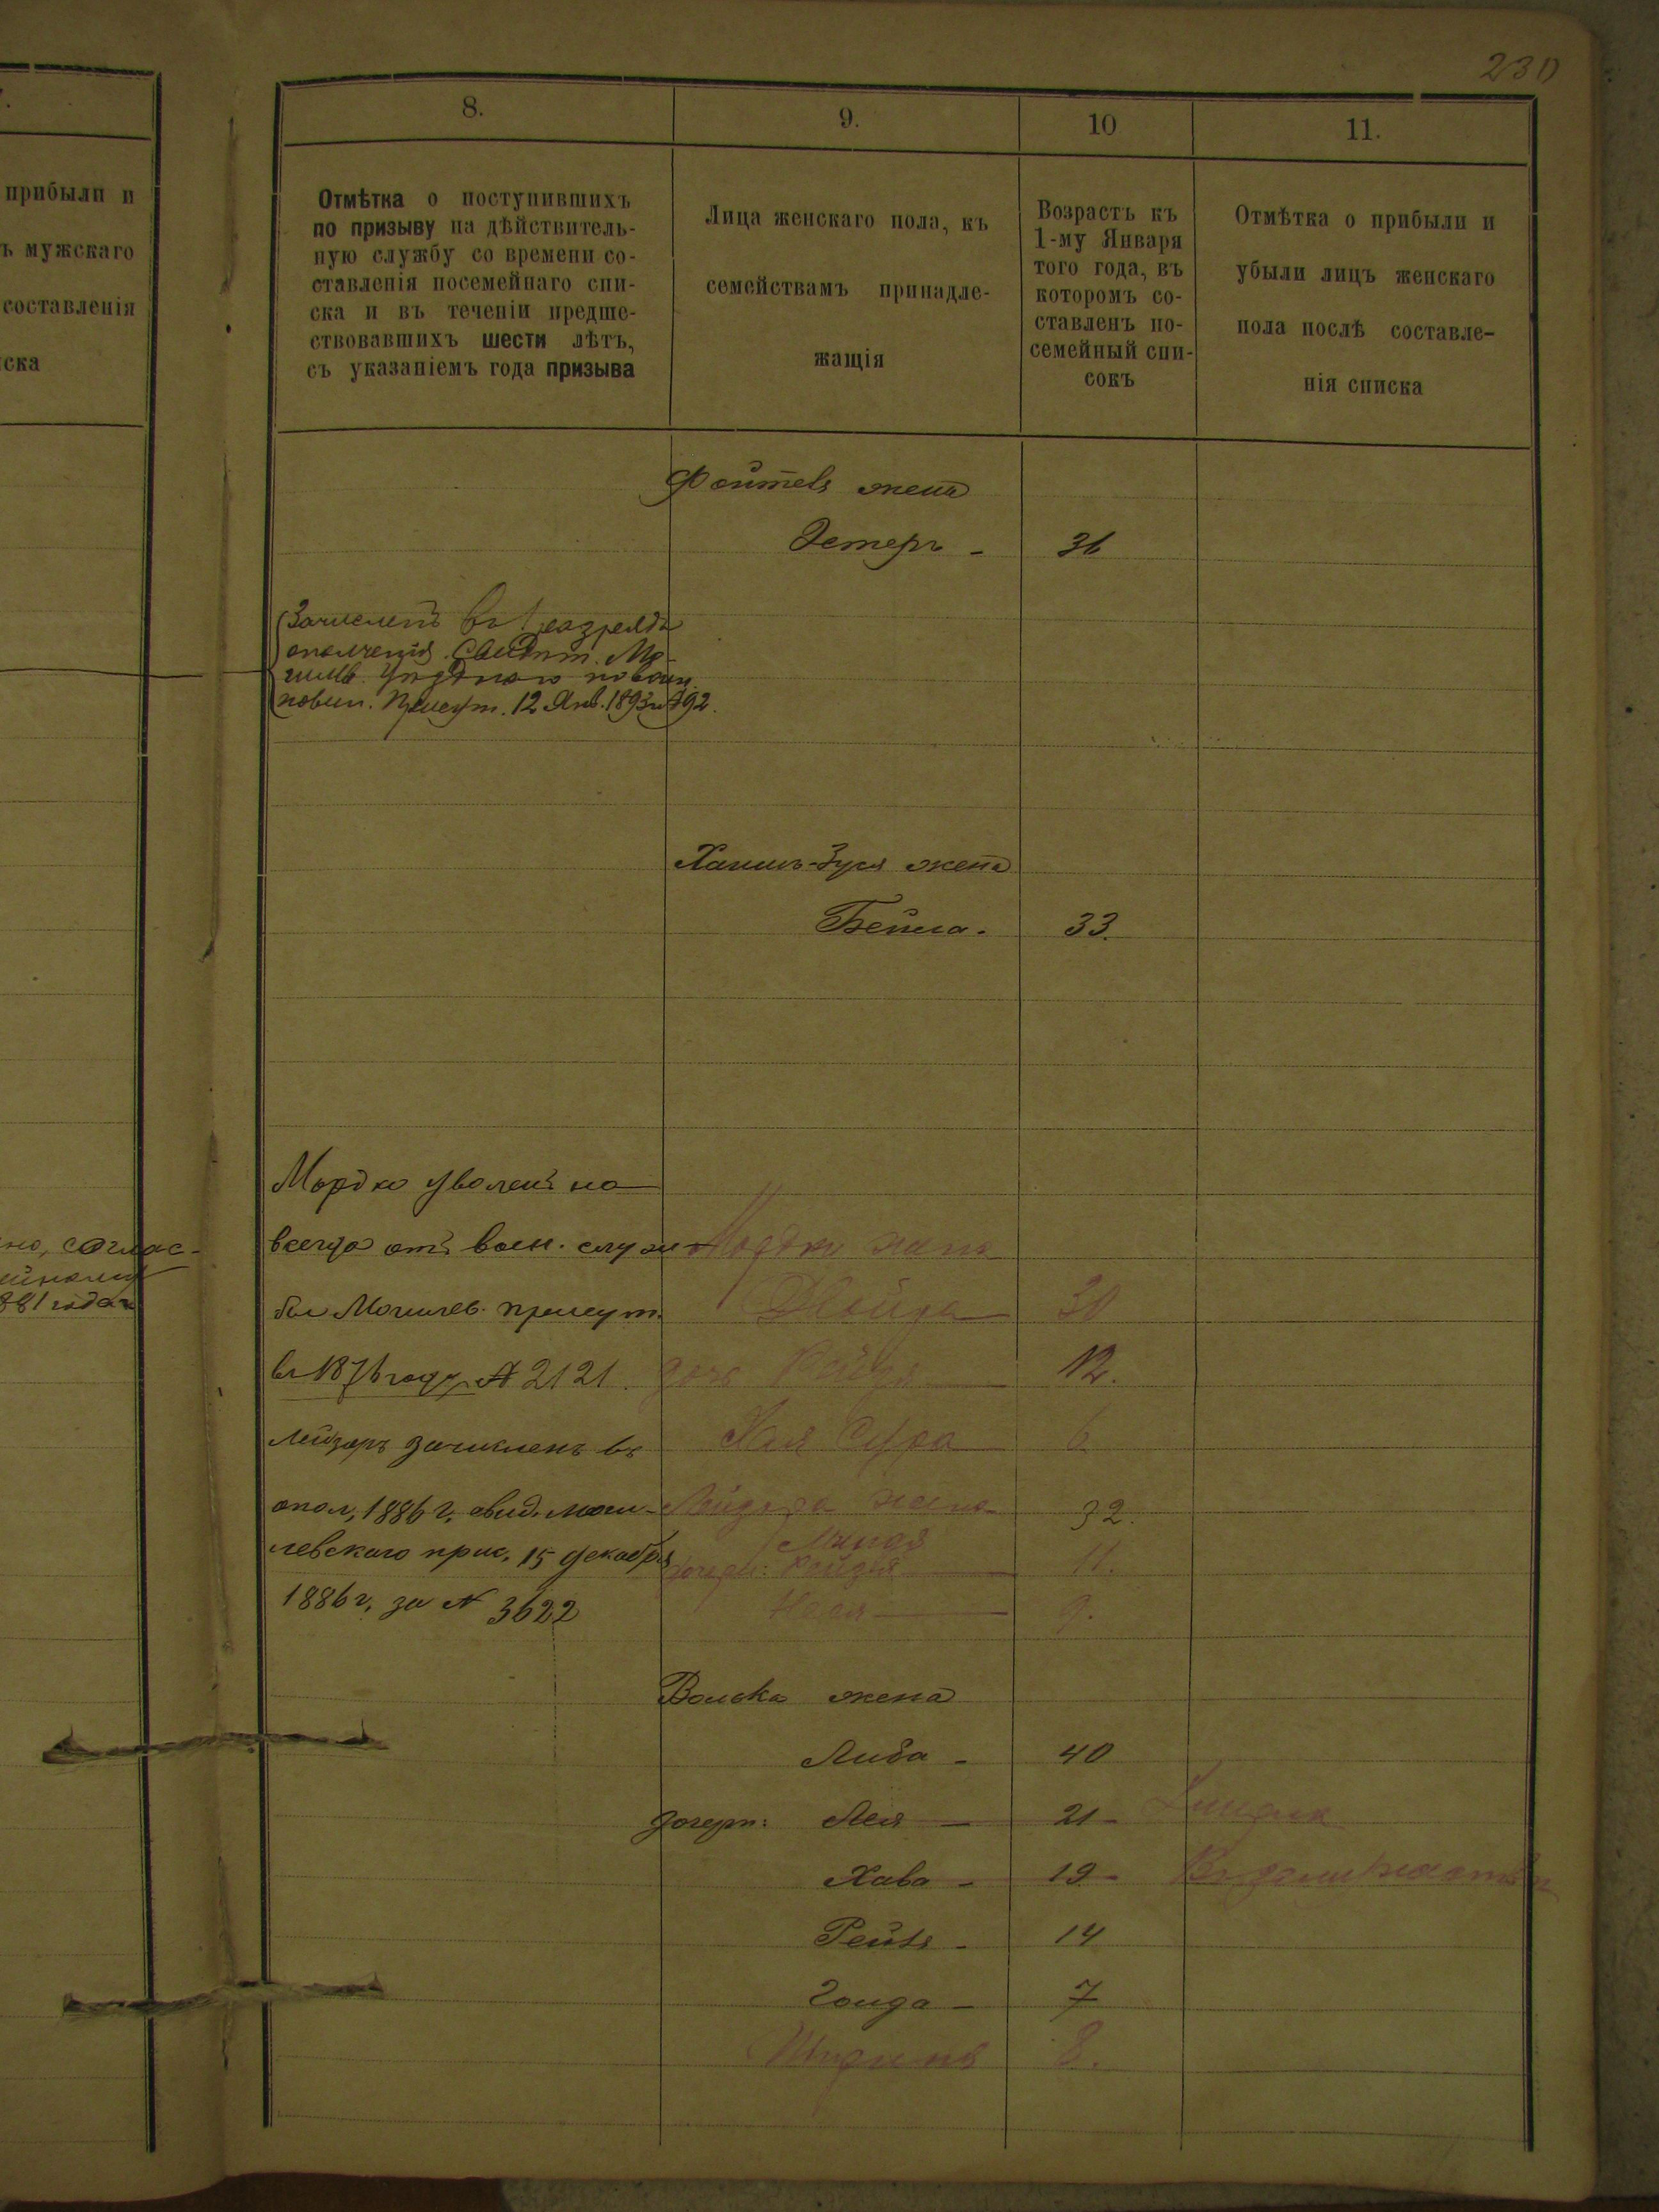 230
8.
9.
10
11.
прибыли и
ъ мужскаго
составленія
ска
Отмѣтка о поступившихъ
по призыву на дѣйствитель-
ную службу со времени со-
ставленія посемейнаго спи-
ска и въ теченіи предше-
ствовавшихъ шести лѣтъ,
съ указаніемъ года призыва
Лица женскаго пола, къ
семействамъ принадле-
жащія
Возрастъ къ
1-му Января
того года, въ
которомъ со-
ставленъ по-
семейный спи-
сокъ
Отмѣтка о прибыли и
убыли лицъ женскаго
пола послѣ составле-
нія списка
жена
Эстеръ - 36
Зачисленъ въ 1 разрядъ
ополченія Свидѣт. Мо-
гилев. Уѣзднаго по воин.
повин. Присут. 12 Янв. 1893 г. № 92.
жена
Бейла. 33.
Мордко уволенъ на
всегда отъ воен. служ
бы Могилев. присут.
въ 1876 году № 2121.
но, соглас-
881 года
Мордки жена
30
дочь Рейзя 12.
Хая Сура 6
Лейзеръ зачисленъ въ
опол, 1886 г, свид. моги-
левскаго прис, 15 декабря
1886 г, за № 3622
Лейзера жена 32.
дочери: Рейзя 11.
9.
Волька жена
Либа - 40
дочери: Лея - 21 -
Хава - 19 - Въ замужествѣ
14
Голда - 7
8.